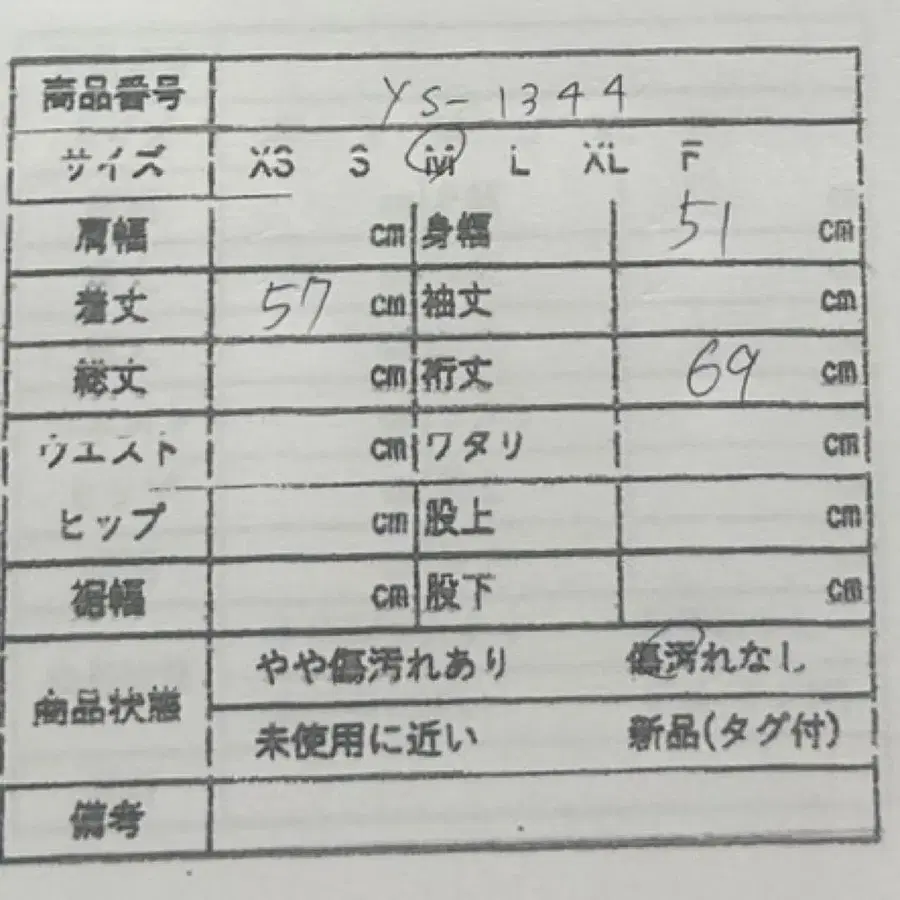 商品番号 YS-1344
サイズ XS S M L XL F
肩幅 cm 身幅 51 cm
着丈 57 cm 袖丈 cm
総丈 cm 裄丈 69 cm
ウエスト cm ワタリ cm
ヒップ cm 股上 cm
裾幅 cm 股下 cm
商品状態 やや傷汚れあり 傷汚れなし
未使用に近い 新品(タグ付)
備考